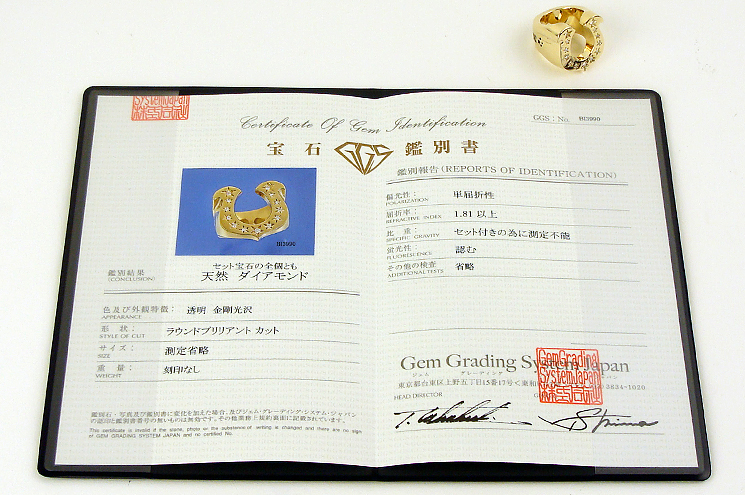 Certificate Of Gem Identification
宝石 GGS 鑑別書
GGS : No. BI3990
BI3990
セット宝石の全個とも
鑑別結果 天然 ダイアモンド
(CONCLUSION)
色及び外観特徴: 透明 金剛光沢
APPEARANCE
形 状: ラウンドブリリアント カット
STYLE OF CUT
サイズ: 測定省略
SIZE
重 量: 刻印なし
WEIGHT
鑑別石・写真及び鑑別書に変化を加えた場合,及びジェム・グレーディング・システム・ジャパン
の認印と鑑別書番号の無いものは無効です。その他業務上規約裏面に記載されています。
This certificate is invalid if the stone, photo or the substance of writing is changed and there are no sign
of GEM GRADING SYSTEM JAPAN and no certified No.
鑑別報告(REPORTS OF IDENTIFICATION)
偏光性: 単屈折性
POLARIZATION
屈折率: 1.81 以上
REFRACTIVE INDEX
比 重: セット付きの為に測定不能
SPECIFIC GRAVITY
蛍光性: 認む
FLUORESCENCE
その他の検査 省略
ADDITIONAL TESTS
Gem Grading System Japan
ジェム グレーディング
東京都台東区上野五丁目15番17号 3834-1020
HEAD DIRECTOR
Gem Grading
System Japan
System Japan
株式会社